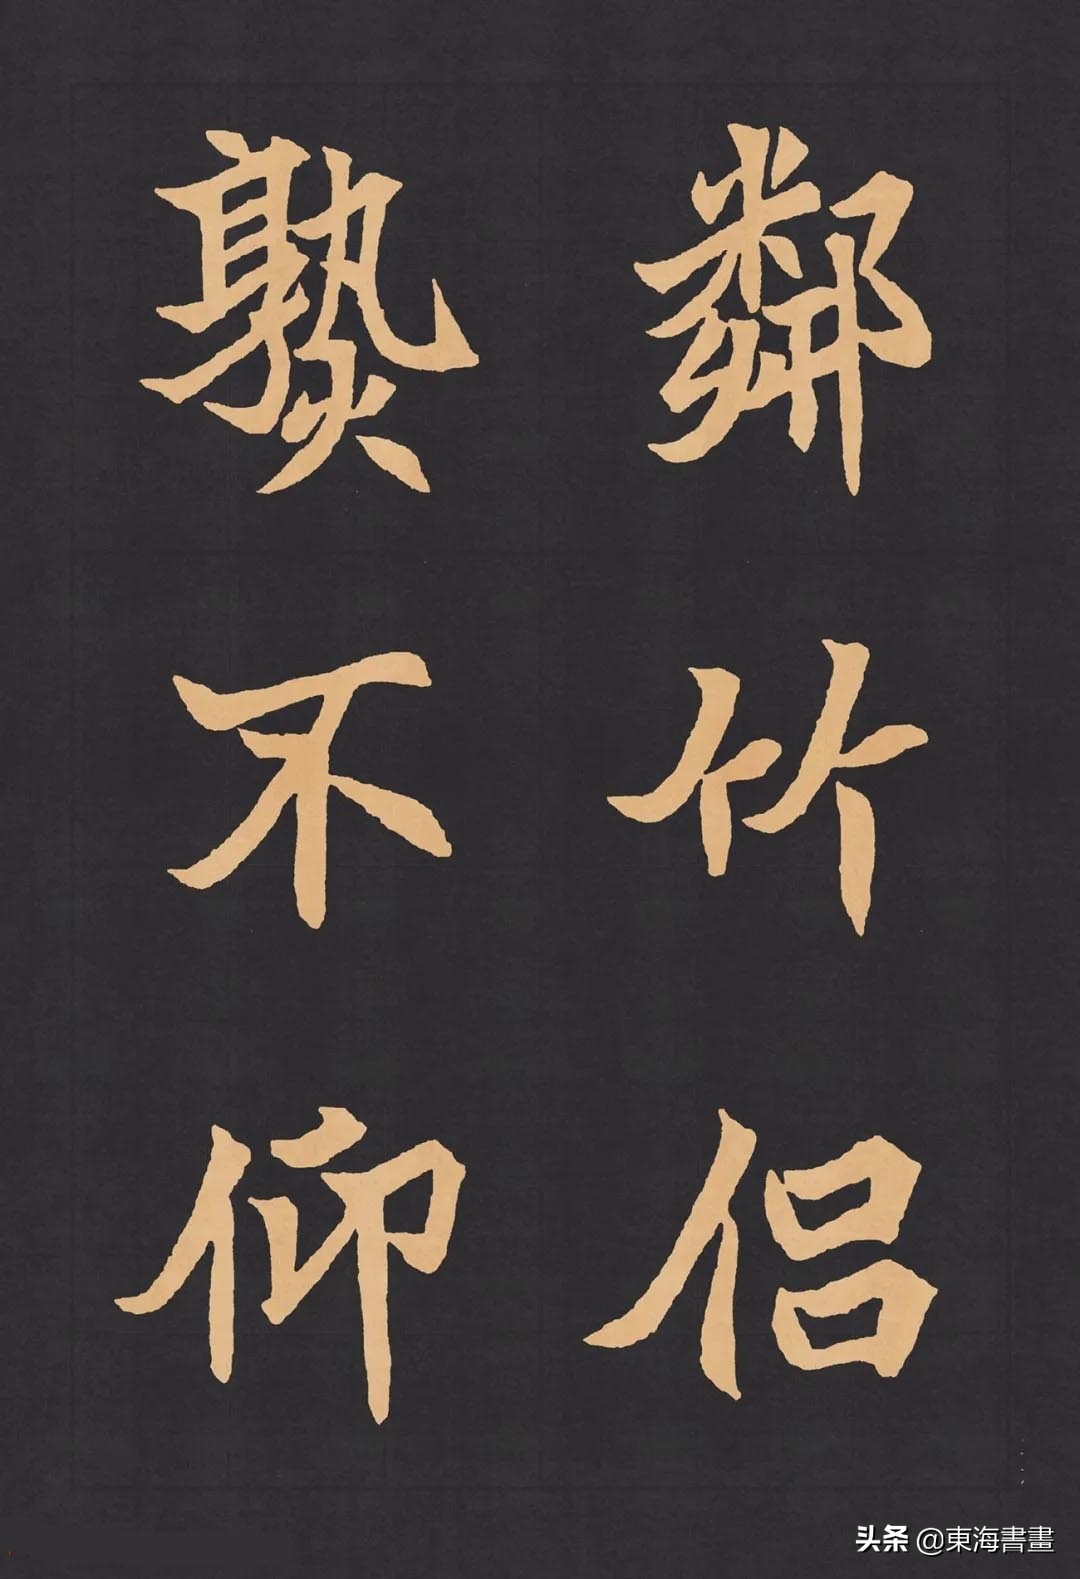 鄰竹侶
熟不仰
头条 @東海書畫